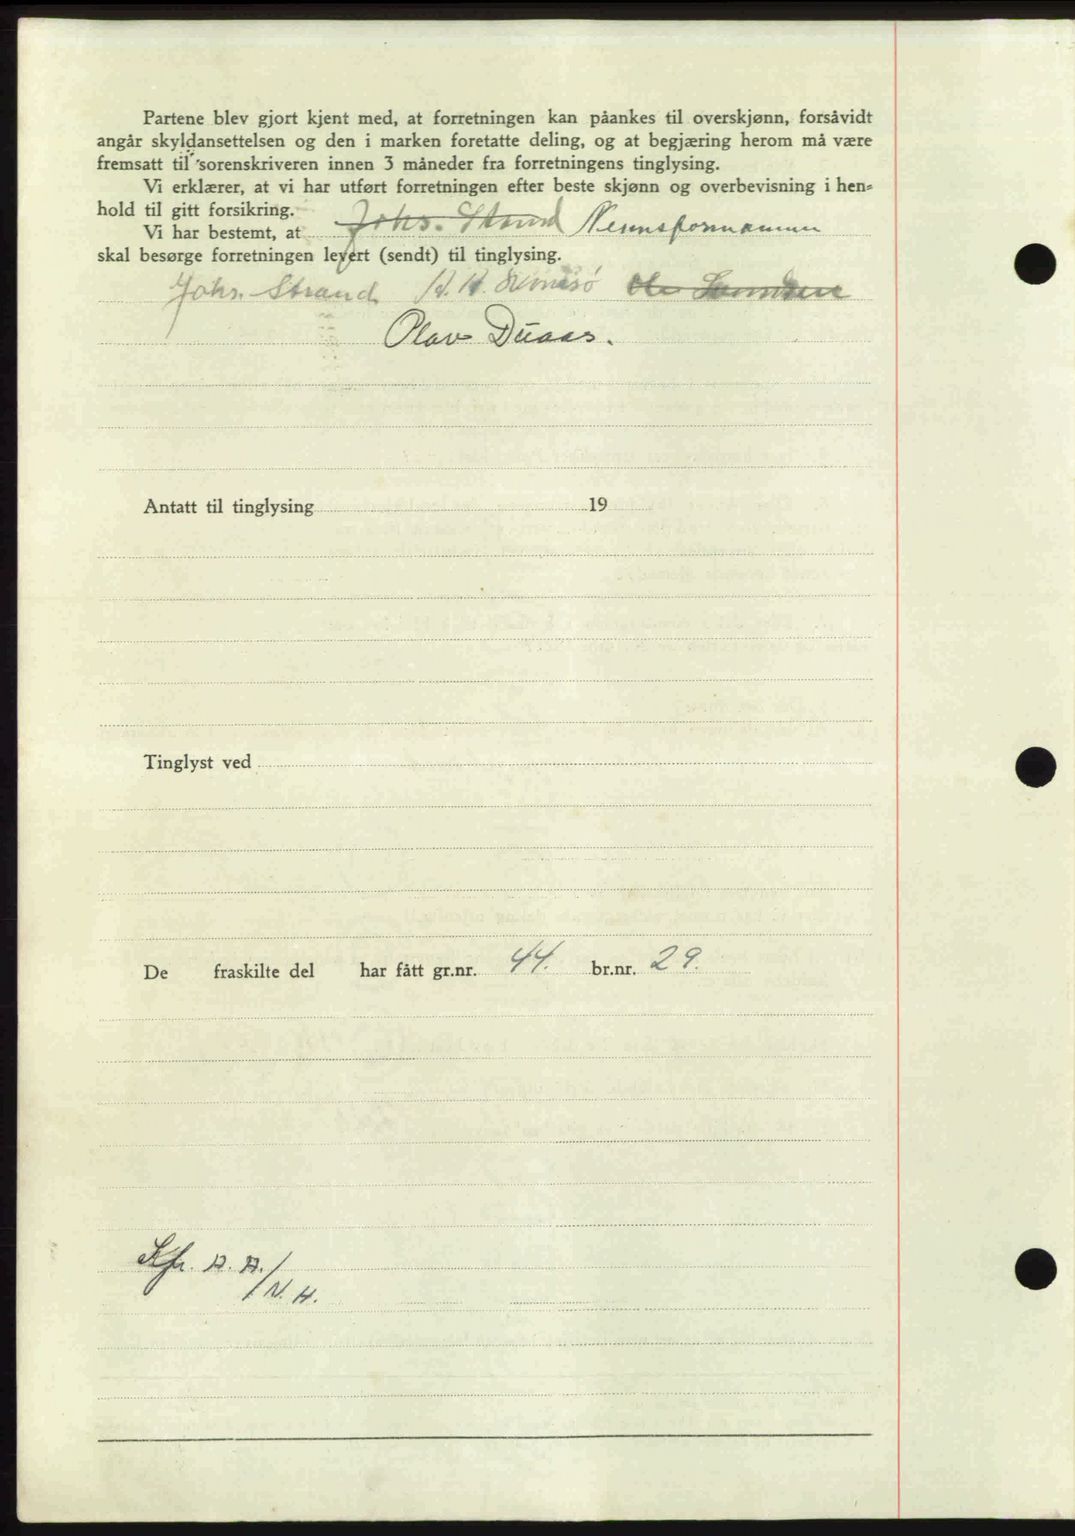 Partene blev gjort kjent med, at forretningen kan påankes til overskjønn, forsåvidt
angår skyldansettelsen og den i marken foretatte deling, og at begjæring herom må være
fremsatt til sorenskriveren innen 3 måneder fra forretningens tinglysing.
Vi erklærer, at vi har utført forretningen efter beste skjønn og overbevisning i hen-
hold til gitt forsikring.
Vi har bestemt, at Johs. Strand
skal besørge forretningen levert (sendt) til tinglysing.
Johs. Strand
Olav Duaas.
Antatt til tinglysing 19
Tinglyst ved
De fraskilte del har fått gr.nr. 44. br.nr. 29.
Kfr. A. A./
N. H.